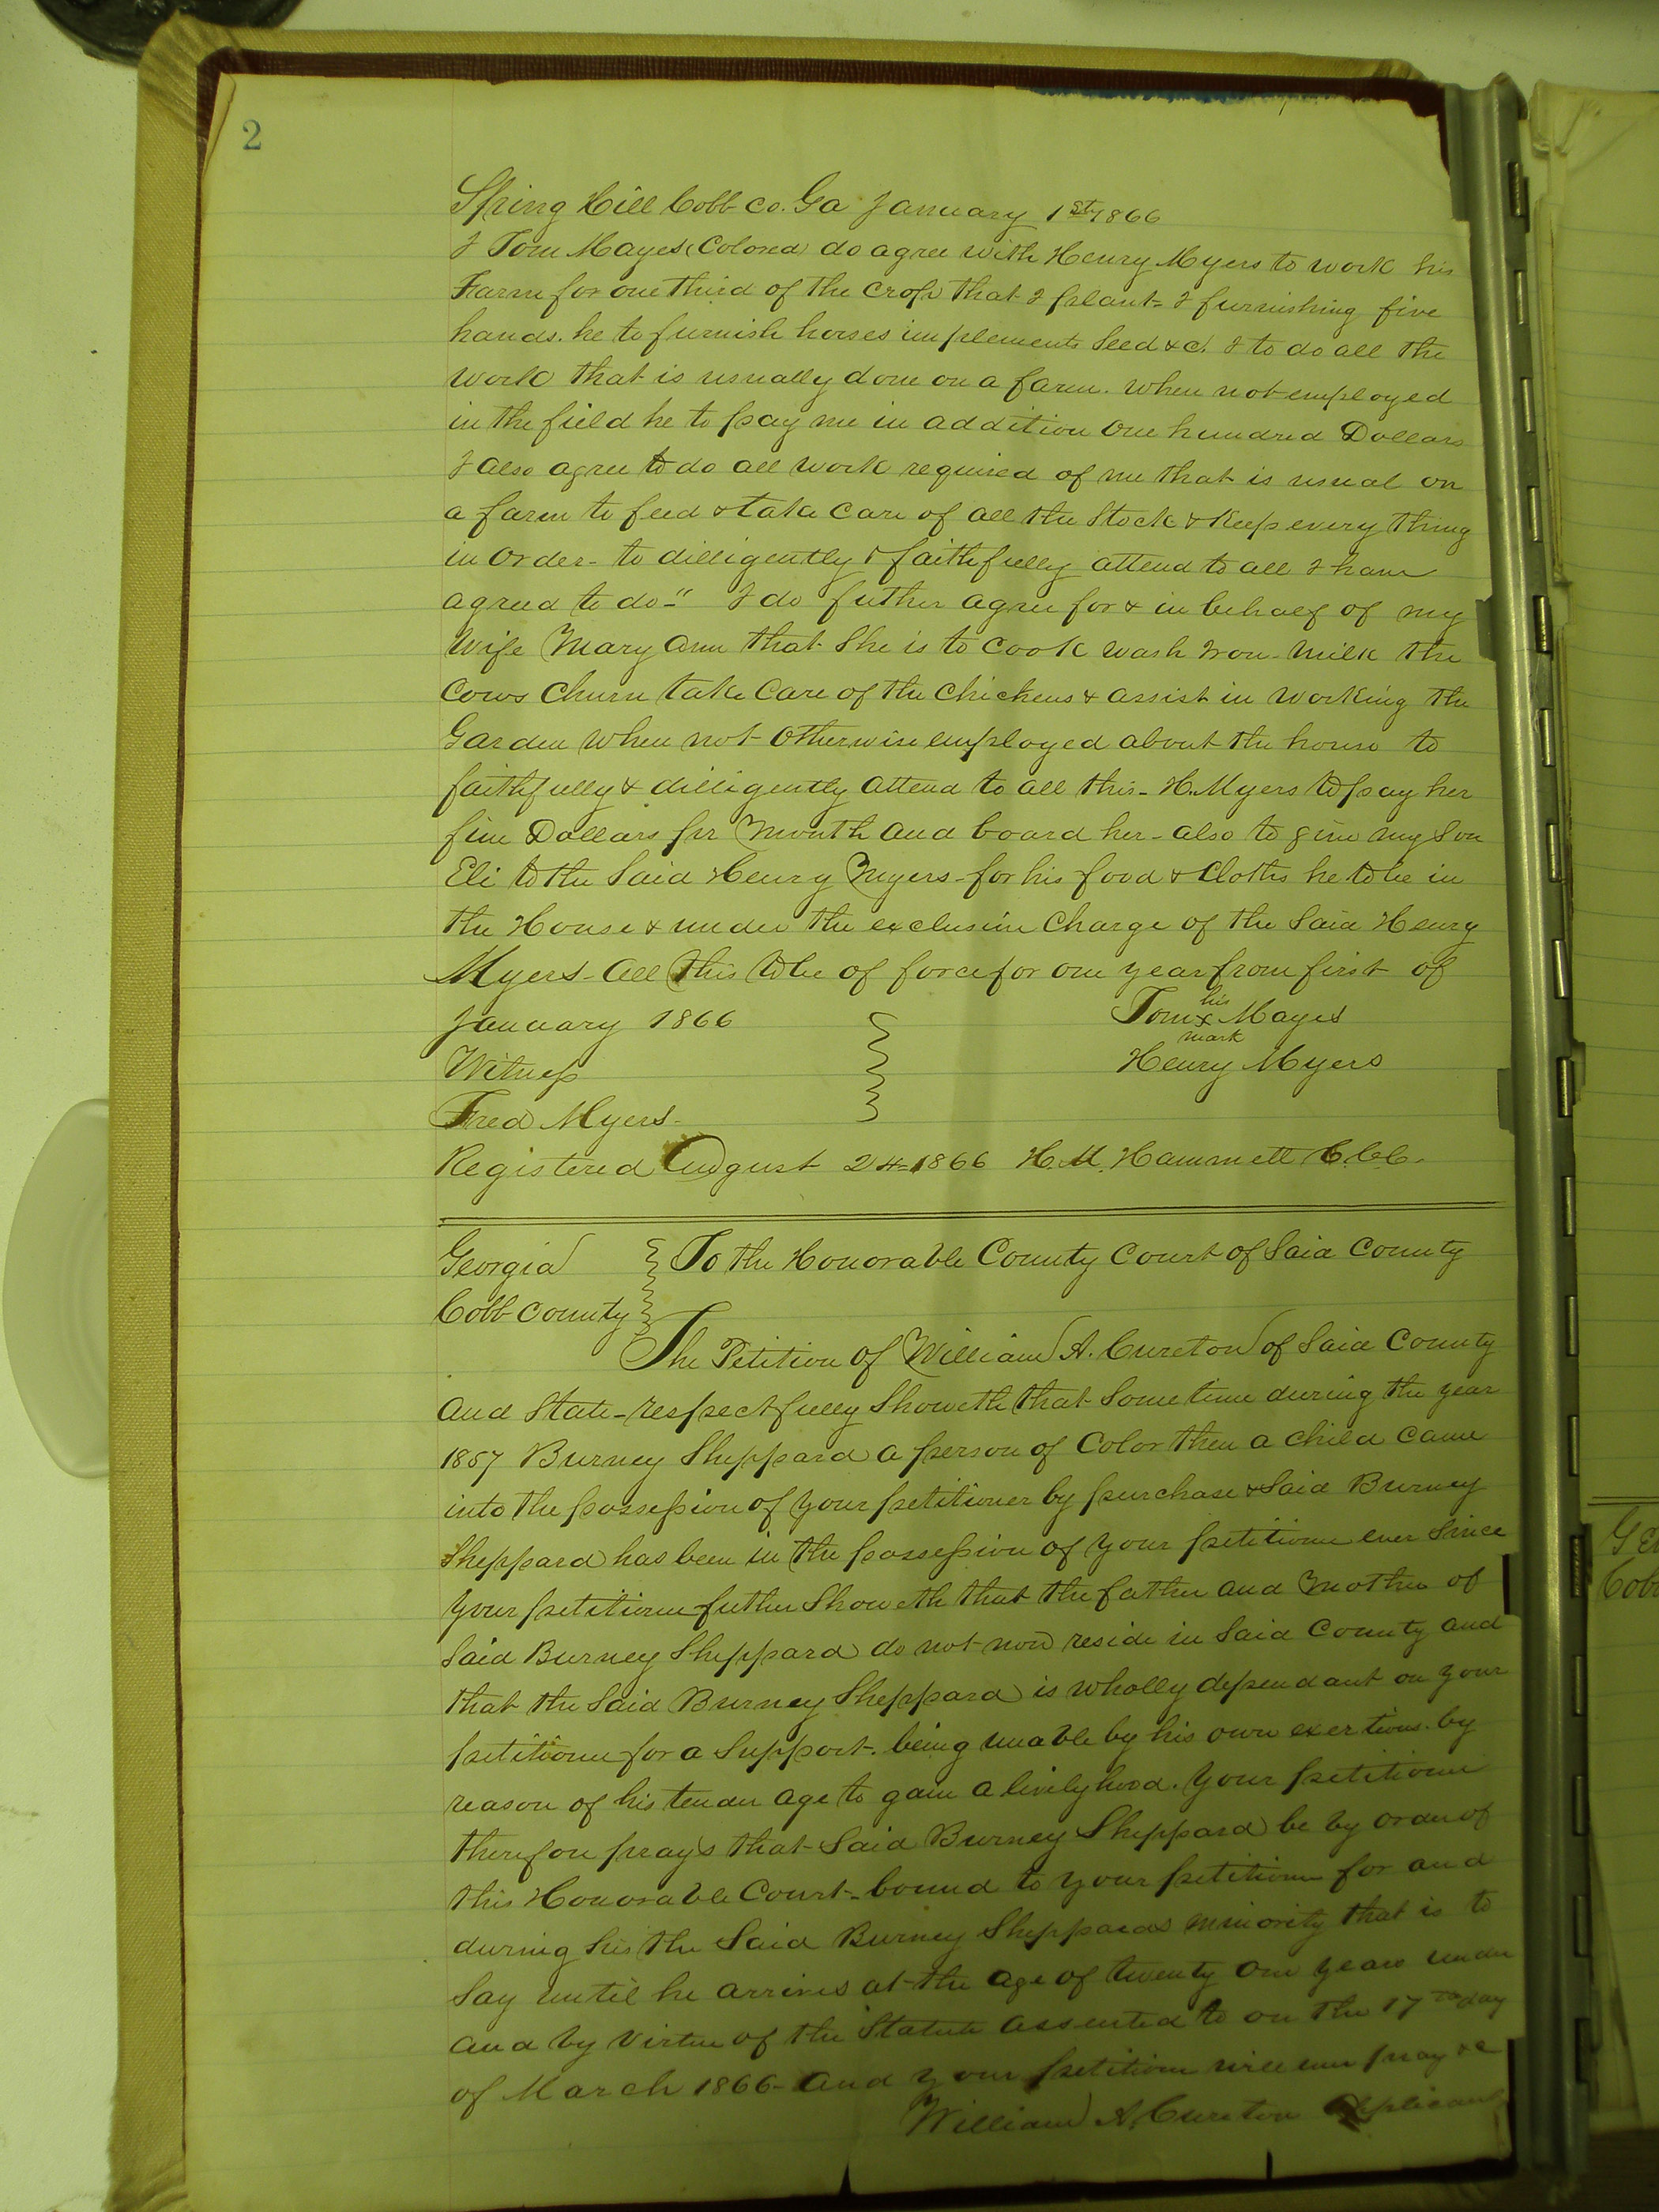 2
Spring Hill Cobb Co. Ga January 1st 1866
I Tom Mayes (Colored) do agree with Henry Myers to work his
Farm for one third of the crop that I plant - I furnishing five
hands. he to furnish horses implements Seed &c. I to do all the
work that is usually done on a farm. when not employed
in the field he to pay me in addition One hundred Dollars
I also agree to do all work required of me that is usual on
a farm to feed & take care of all the Stock & Keep every thing
in Order - to dilligently & faithfully attend to all I have
agreed to do -" I do futher agree for & in behalf of my
Wife Mary Ann that She is to Cook wash Iron - Milk the
Cows Churn take Care of the Chickens & assist in working the
Garden when not Otherwise employed about the house to
faithfully & dilligently attend to all this - H. Myers to pay her
five Dollars per Month and board her - also to give my Son
Eli to the Said Henry Myers - for his food & Cloths he to be in
the House & under the exclusive Charge of the Said Henry
Myers - All This to be of force for one year from first of
January 1866
Tom his x mark Mayes
Witness
Henry Myers
Fred Myers -
Registered August 24 - 1866 H. M. Hammett C.C.C.
Georgia } To the Honorable County Court of Said County
Cobb County }
The Petition of William A. Cureton of Said County
and State - respectfully Showeth that Some time during the year
1857 Burney Sheppard a person of Color then a child came
into the possession of your petitioner by purchase & Said Burney
Sheppard has been in the possession of your petitioner ever Since
your petitioner futher Showeth that the father and Mother of
Said Burney Sheppard do not now reside in Said County and
that the Said Burney Sheppard is wholly dependant on your
petitioner for a Support. being unable by his own exertions by
reason of his tender age to gain a livelyhood. Your petitioner
therefore prays that Said Burney Sheppard be by order of
this Honorable Court - bound to your petitioner for and
during his the Said Burney Sheppards minority that is to
Say until he arrives at the age of twenty one years under
and by virtue of the Statute assented to on the 17th day
of March 1866 - And your petitioner will ever pray &c
William A. Cureton Applicant
Ge
Cob